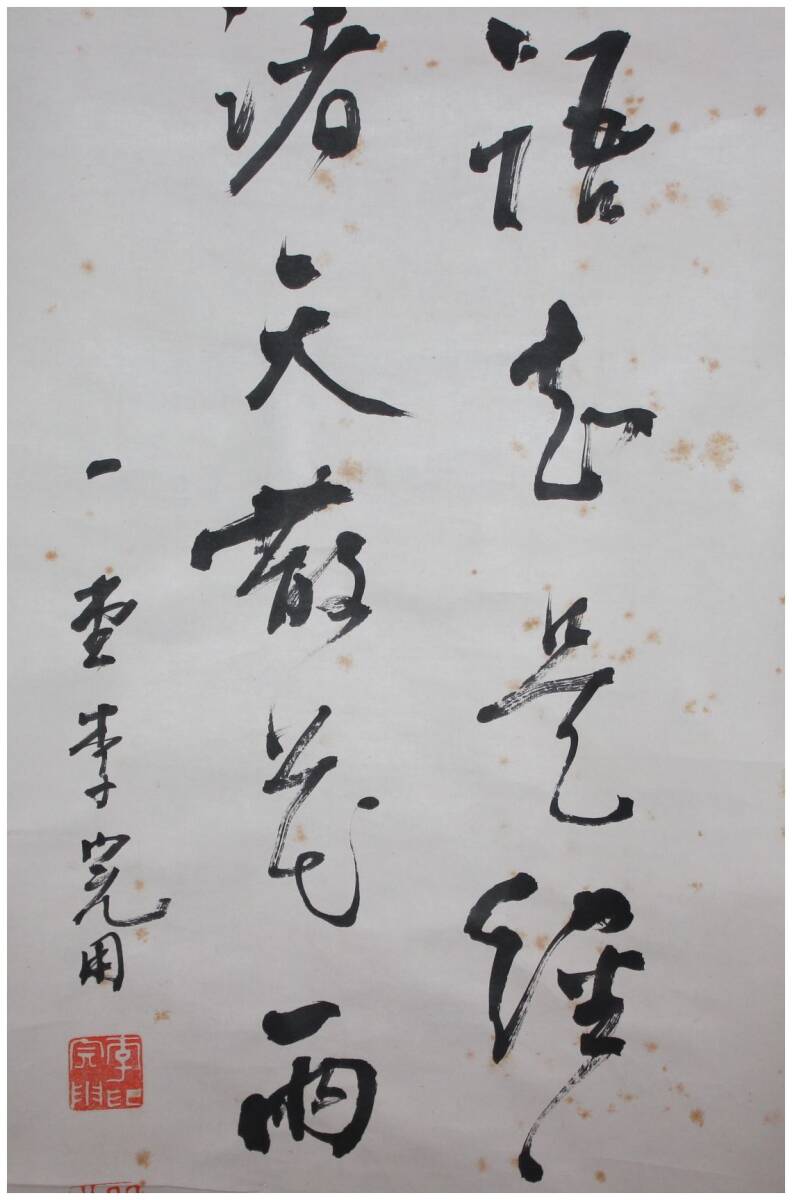 語是經
諸天散花雨
一堂李完用
李印完用